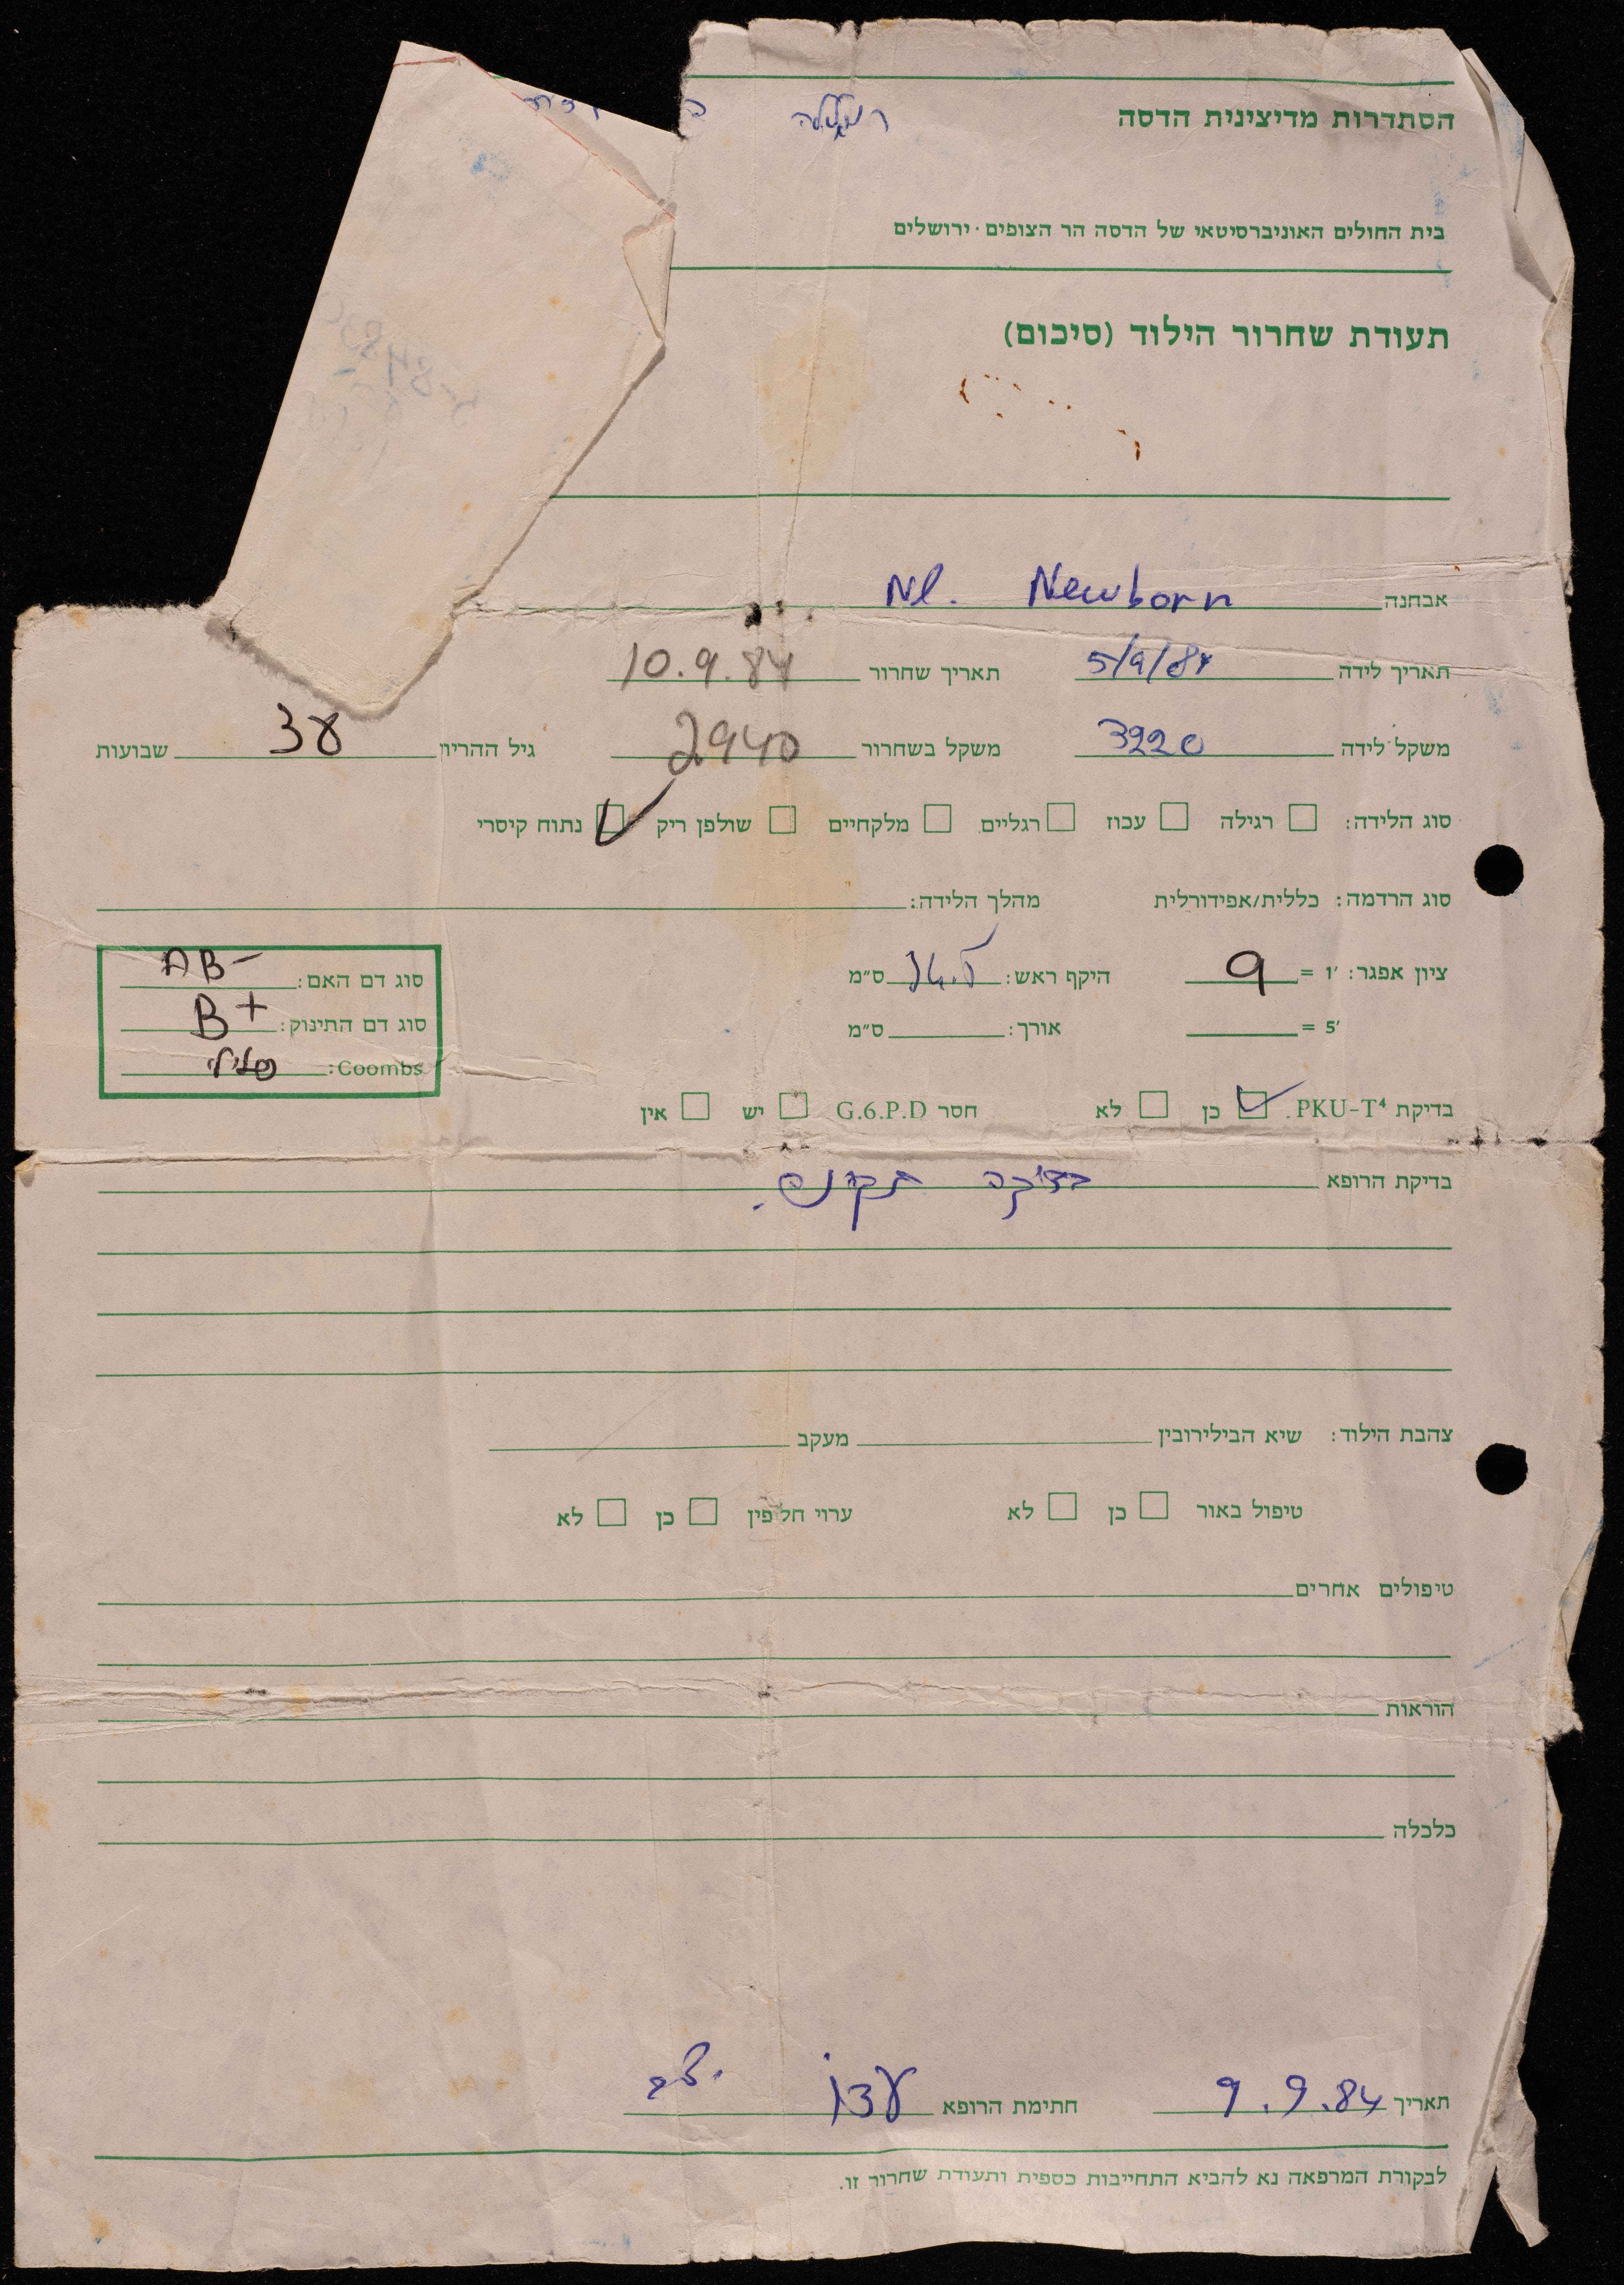 הסתדרות מדיצינית הדסה
בית החולים האוניברסיטאי של הדסה הר הצופים · ירושלים
תעודת שחרור הילוד (סיכום)
אבחנה Nl. Newborn
תאריך לידה 5/9/84 תאריך שחרור 10.9.84
משקל לידה 3220 משקל בשחרור 2940 גיל ההריון שבועות
סוג הלידה: רגילה עכוז רגליים מלקחיים שולפן ריק נתוח קיסרי
סוג הרדמה: כללית/אפידורלית מהלך הלידה:
ציון אפגר: 1' = 9 היקף ראש: 34.5 ס״מ סוג דם האם: AB-
5' = אורך: ס״מ סוג דם התינוק: B+
Coombs: שלילי
בדיקת PKU-T4. כן לא חסר G.6.P.D יש אין
בדיקת הרופא בדיקה תקינה.
צהבת הילוד: שיא הבילירובין מעקב
טיפול באור כן לא ערוי חלפין כן לא
טיפולים אחרים
הוראות
כלכלה
תאריך 9.9.84 חתימת הרופא
לבקורת המרפאה נא להביא התחייבות כספית ותעודת שחרור זו.